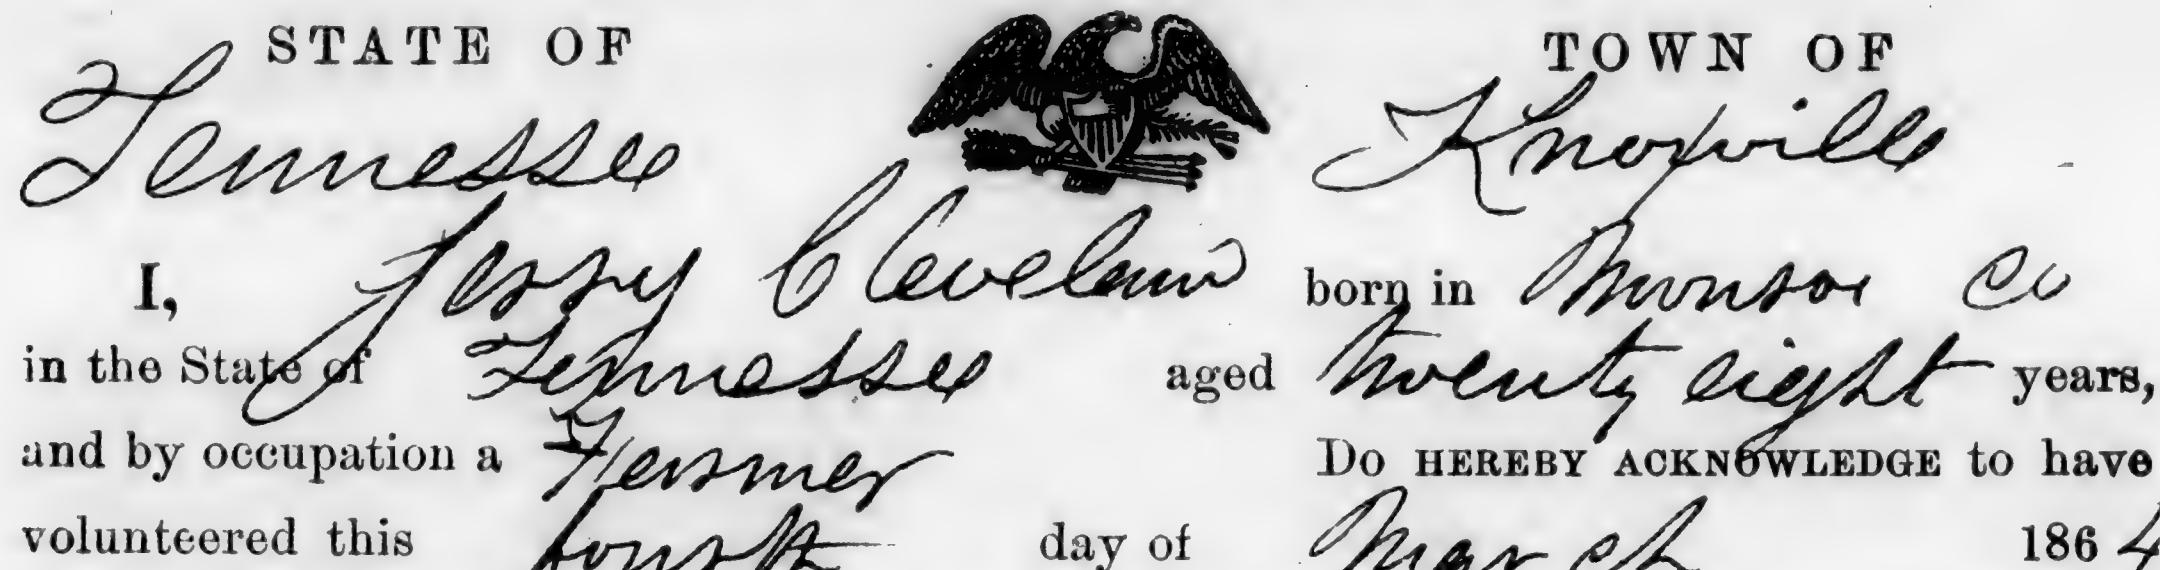 STATE OF TOWN OF
Tennessee Knoxville
I, Jerry Cleveland born in Monroe Co
in the State of Tennessee aged twenty eight years,
and by occupation a Farmer Do HEREBY ACKNOWLEDGE to have
volunteered this fourth day of March 1864